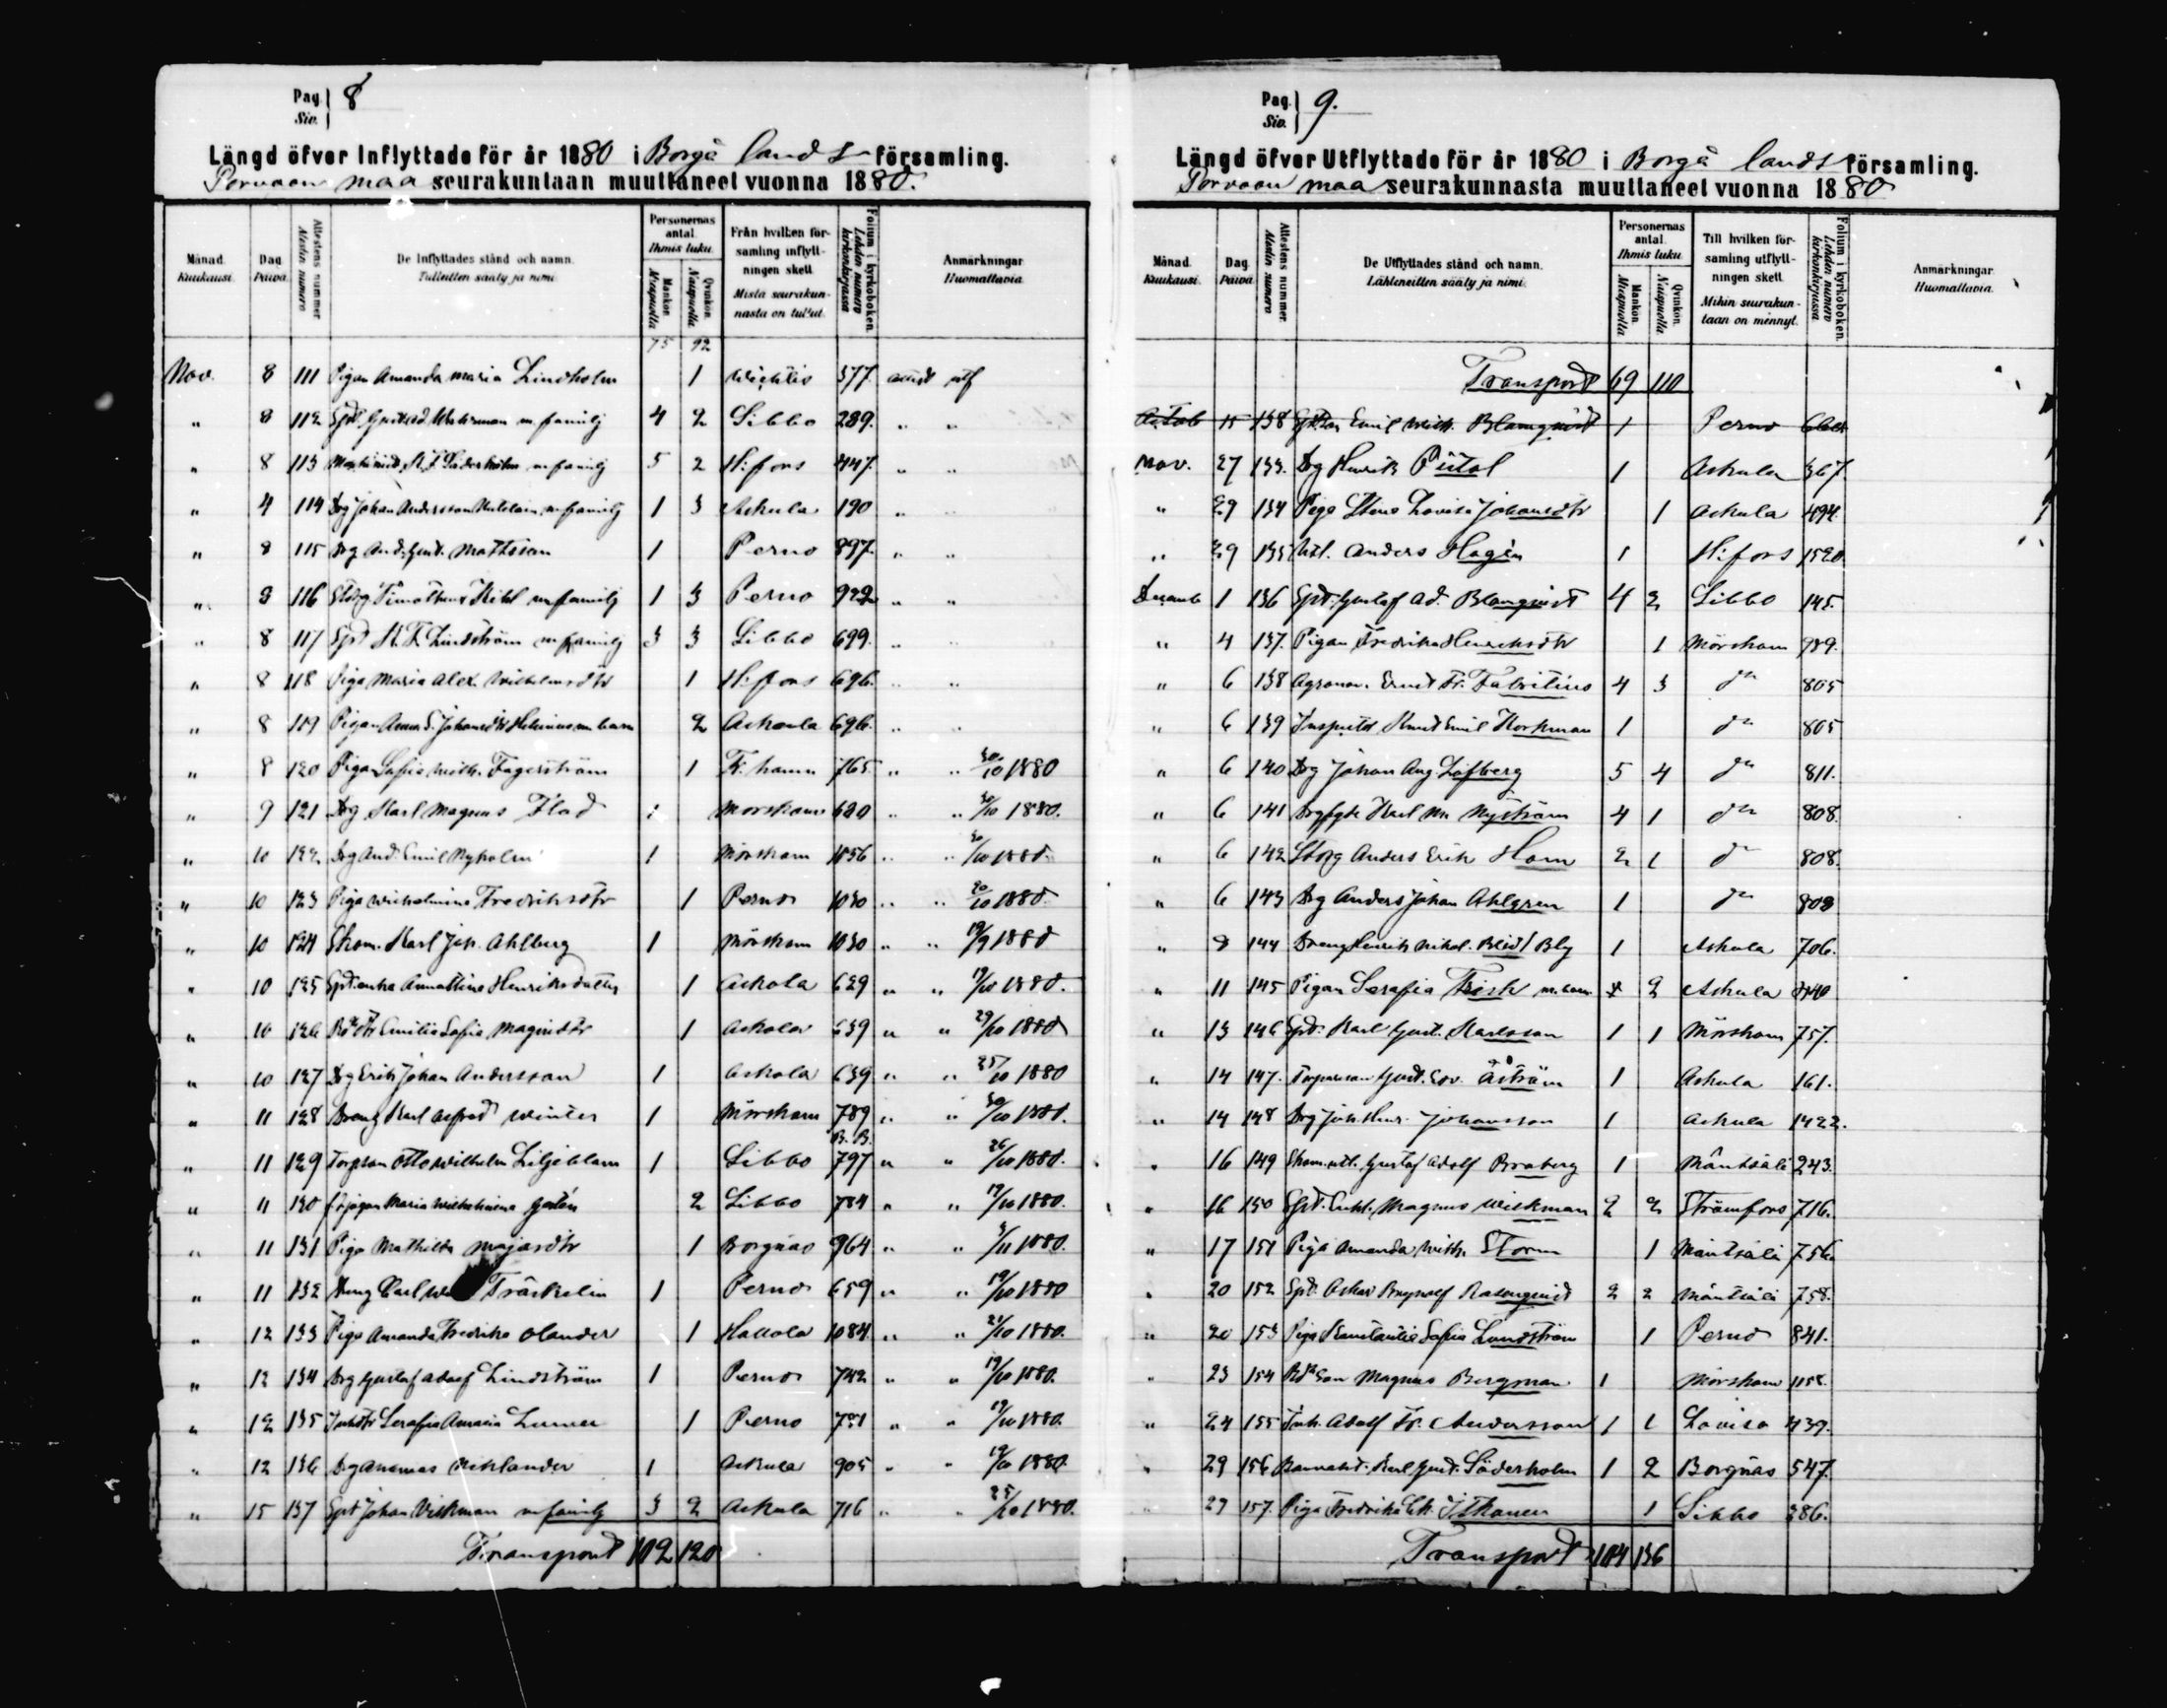 Pag. 8
Siv.
Längd öfver Inflyttade för år 1880 i Borgå lands församling.
Porvoon maa seurakuntaan muuttaneet vuonna 1880.
Månad. Kuukausi. Dag. Päivä. Attestens nummer. Atestin numero De Inflyttades stånd och namn. Tulleitten sääty ja nimi. Personernas antal. Ihmis luku. Mankön. Miespuolia Qvinkön. Naispuolia Från hvilken församling inflyttningen skett. Mistä seurakunnasta on tullut. Folium i kyrkoboken. Lehden numero kirkonkirjassa Anmärkningar. Huomattavia.
75 92
Nov. 8 111 Pigan Amanda Maria Lindholm 1 Wichtis 377.
" 8 112 m familj 4 2 Sibbo 289. " "
" 8 113 Söderholm m familj 5 2 H:fors 447. " "
" 4 114 Drg Johan Andersson m familj 1 3 Askula 190 " "
" 8 115 Drg And. Gust. Mattsson 1 Perno 897. " "
" 8 116 Timotheus m familj 1 3 Perno 922 " "
" 8 117 K. F. Lindström m familj 3 3 Sibbo 699. "
" 8 118 Piga Maria Alex. Wilhelmsdtr 1 H:fors 696. " "
" 8 119 Pigan Anna S. Johansdtr m barn 2 Askula 696. " "
" 8 120 Piga Sofia Wilh. Fagerström 1 Fr. hamn 765. " " 30/10 1880
" 9 121 Drg Karl Magnus Flod 1 Mörskom 620 " " 30/10 1880.
" 10 122 Drg And. Emil Nyholm 1 Mörskom 1056 " " 30/10 1880.
" 10 123 Piga Wilhelmina Fredriksdtr 1 Perno 1030 " " 20/10 1880.
" 10 124 Skom. Karl Joh. Ahlberg 1 Mörskom 1030 " " 19/9 1880
" 10 125 Annastina Henriksdotter 1 Askola 629 " " 19/10 1880.
" 10 126 Emilia Sofia Magnidtr 1 Askola 639 " " 29/10 1880
" 10 127 Drg Erik Johan Andersson 1 Askola 639 " " 25/10 1880
" 11 128 Dräng Karl Alfred Winter 1 Mörskom 789 " " 30/10 1880.
B. B.
" 11 129 Torpson Otto Wilhelm Liljeblom 1 Sibbo 797 " " 26/10 1880.
" 11 130 Maria Wilhelmina 2 Sibbo 784 " " 19/10 1880.
" 11 131 Piga Mathilda Majasdtr 1 Borgnäs 964 " " 3/11 1880.
" 11 132 Dräng Carl Träskelin 1 Perno 659 " " 19/10 1880
" 12 133 Piga Amanda Fredrika Olander 1 Hollola 1084 " " 21/10 1880.
" 12 134 Drg Gustaf Adolf Lindström 1 Perno 742 " " 19/10 1880.
" 12 135 Serafia Amalia 1 Perno 781 " " 19/10 1880.
" 12 136 Drg Ananias Niklander 1 Askula 905 " " 19/10 1880.
" 15 137 Johan Wiskman m familj 3 2 Askula 716 " " 25/10 1880.
Transport 102 120
Pag. 9.
Siv.
Längd öfver Utflyttade för år 1880 i Borgå lands församling.
Porvoon maa seurakunnasta muuttaneet vuonna 1880
Månad. Kuukausi. Dag. Päivä. Attestens nummer. Atestin numero De Utflyttades stånd och namn. Lähteneitten sääty ja nimi. Personernas antal. Ihmis luku. Mankön. Miespuolia Qvinkön. Naispuolia Till hvilken församling utflyttningen skett. Mihin seurakuntaan on mennyt. Folium i kyrkoboken. Lehden numero kirkonkirjassa Anmärkningar. Huomattavia.
Transport 69 110
Octob 15 138 Emil Wilh. Blomqvist 1 Perno
Nov. 27 133. Drg Henrik 1 Askula 367.
" 29 134 Piga Stina Lovisa Johansdtr 1 Askula 494.
" 29 135 Anders Hagén 1 H:fors 1520
Decemb 1 136 Gustaf Ad. Blomqvist 4 2 Sibbo 145.
" 4 137. Pigan Fredrika Henriksdtr 1 Mörskom 989.
" 6 138 Agronom. Ernst Fr. Fabritius 4 3 d:o 805
" 6 139 Knut Emil Korkman 1 d:o 805
" 6 140 Drg Johan Aug. Löfberg 5 4 d:o 811.
" 6 141 Karl Nyström 4 1 d:o 808.
" 6 142 Anders Erik Hom 2 1 d:o 808.
" 6 143 Drg Anders Johan Ahlgren 1 d:o 809
" 8 144 Dräng Henrik Nikol. Bly 1 Askula 706.
" 11 145 Pigan Serafia m. barn 2 Askula
" 13 146 Karl Gust. Karlsson 1 1 Mörskom 757.
" 14 147. Torpareson Gust. Edv. Åström 1 Askula 161.
" 14 148 Drg Joh. Henr. Johansson 1 Askula 1422.
" 16 149 Gustaf Adolf Broberg 1 Mäntsälä 243.
" 16 150 Magnus Wiskman 2 2 Strömfors 716.
" 17 151 Piga Amanda Wilh. Storm 1 Mäntsälä 756.
" 20 152 Oskar Rosenqvist 2 2 Mäntsälä 758.
" 20 153 Piga Konstantia Sofia Lundström 1 Perno 841.
" 23 154 Magnus Bergman 1 Mörskom 1158.
" 24 155 Inh. Adolf Fr. Andersson 1 1 Lovisa 439.
" 29 156 Karl Gust. Söderholm 1 2 Borgnäs 547.
" 29 157. Piga Fredrika Ithonen 1 Sibbo 286.
Transport 104 136